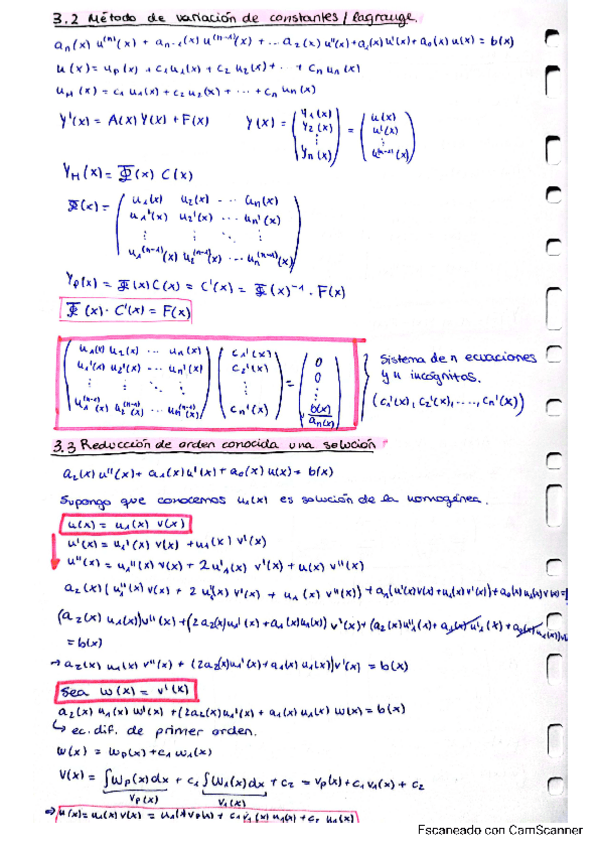 3.2 Método de variación de constantes / Lagrange.
aₙ(x) u⁽ⁿ⁾(x) + aₙ₋₁(x) u⁽ⁿ⁻¹⁾(x) + ... a₂(x) u''(x) + a₁(x) u'(x) + a₀(x) u(x) = b(x)
u(x) = u_p(x) + c₁u₁(x) + c₂ u₂(x) + ... + cₙ uₙ(x)
u_H(x) = c₁ u₁(x) + c₂ u₂(x) + ... + cₙ uₙ(x)
Y'(x) = A(x) Y(x) + F(x) Y(x) = (y₁(x) y₂(x) ⋮ yₙ(x)) = (u(x) u'(x) ⋮ u⁽ⁿ⁻¹⁾(x))
Y_H(x) = Φ(x) C(x)
Φ(x) = (u₁(x) u₂(x) ... uₙ(x)
u₁'(x) u₂'(x) ... uₙ'(x)
⋮ ⋮ ⋱ ⋮
u₁⁽ⁿ⁻¹⁾(x) u₂⁽ⁿ⁻¹⁾(x) ... uₙ⁽ⁿ⁻¹⁾(x))
Y_p(x) = Φ(x) C(x) = C'(x) = Φ(x)⁻¹ · F(x)
Φ(x) · C'(x) = F(x)
(u₁(x) u₂(x) ... uₙ(x) (c₁'(x) (0
u₁'(x) u₂'(x) ... uₙ'(x) c₂'(x) 0 Sistema de n ecuaciones
⋮ ⋮ ⋱ ⋮ ⋮ = ⋮ y n incógnitas.
u₁⁽ⁿ⁻¹⁾(x) u₂⁽ⁿ⁻¹⁾(x) ... uₙ⁽ⁿ⁻¹⁾(x)) cₙ'(x)) b(x)/aₙ(x)) (c₁'(x), c₂'(x), ..., cₙ'(x))
3.3 Reducción de orden conocida una solución
a₂(x) u''(x) + a₁(x) u'(x) + a₀(x) u(x) = b(x)
Supongo que conocemos u₁(x) es solución de la homogénea.
u(x) = u₁(x) v(x)
u'(x) = u₁'(x) v(x) + u₁(x) v'(x)
u''(x) = u₁''(x) v(x) + 2 u₁'(x) v'(x) + u(x) v''(x)
a₂(x) (u₁''(x) v(x) + 2 u₁''(x) v'(x) + u₁(x) v''(x)) + aₙ(u'(x) v(x) + u₁(x) v'(x)) + a₀(x) u₁(x) v(x) =
(a₂(x) u₁(x)) v''(x) + (2a₂(x) u₁'(x) + a₁(x) u₁(x)) v'(x) + (a₂(x) u''₁(x) + a₁(x) u'₁(x) + a₀(x) u₁(x)) v(x)
= b(x)
→ a₂(x) u₁(x) v''(x) + (2a₂(x) u₁'(x) + a₁(x) u₁(x)) v'(x) = b(x)
Sea w(x) = v'(x)
a₂(x) u₁(x) w'(x) + (2a₂(x) u₁'(x) + a₁(x) u₁(x) w(x) = b(x)
↳ ec. dif. de primer orden.
w(x) = w_p(x) + c₁ w₁(x)
v(x) = ∫w_p(x)dx + c₁ ∫w₁(x)dx + c₂ = v_p(x) + c₁ v₁(x) + c₂
v_p(x) v₁(x)
⇒ u(x) = u₁(x) v(x) = u₁(x) v_p(x) + c₁ v₁(x) u₁(x) + c₂ u₁(x)
Escaneado con CamScanner